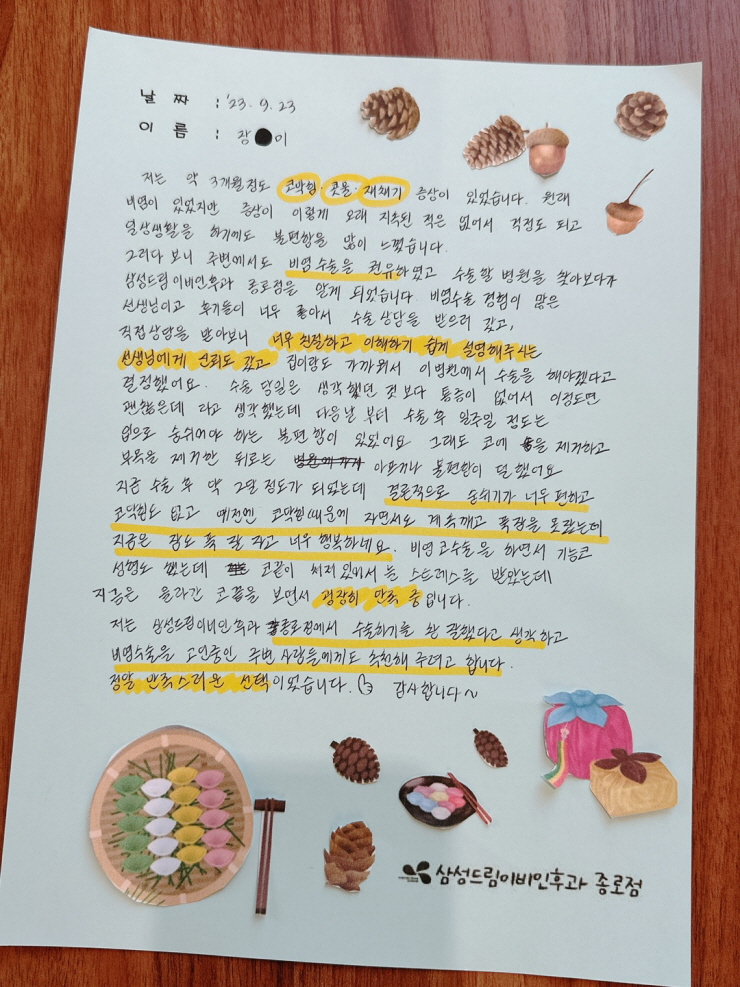 날 짜 : '23. 9. 23
이 름 : 장●미
저는 약 3개월정도 코막힘·콧물·재채기 증상이 있었습니다. 원래
비염이 있었지만 증상이 이렇게 오래 지속된 적은 없어서 걱정도 되고
일상생활을 하기에도 불편함을 많이 느꼈습니다.
그러다 보니 주변에서도 비염수술을 권유하였고 수술할 병원을 찾아보다가
삼성드림이비인후과 종로점을 알게 되었습니다. 비염수술 경험이 많은
선생님이고 후기들이 너무 좋아서 수술상담을 받으러 갔고,
직접상담을 받아보니 너무 친절하고 이해하기 쉽게 설명해주시는
선생님에게 신뢰도 갔고 집이랑도 가까워서 이병원에서 수술을 해야겠다고
결정했어요. 수술 당일은 생각했던 것보다 통증이 없어서 이정도면
괜찮은데 라고 생각했는데 다음날부터 수술 후 일주일 정도는
입으로 숨쉬어야 하는 불편함이 있었어요 그래도 코에 솜을 제거하고
부목을 제거한 뒤로는 아프거나 불편함이 덜했어요
지금 수술 후 약 2달정도가 되었는데 결론적으로 숨쉬기가 너무 편하고
코막힘도 없고 예전엔 코막힘때문에 자면서도 계속깨고 푹잠을 못잤는데
지금은 잠도 푹 잘 자고 너무 행복하네요. 비염코수술을 하면서 기능코
성형도 했는데 코끝이 쳐져있어서 늘 스트레스를 받았는데
지금은 올라간 코끝을 보면서 굉장히 만족 중입니다.
저는 삼성드림이비인후과 종로점에서 수술하기를 참 잘했다고 생각하고
비염수술을 고민중인 주변 사람들에게도 추천해 주려고 합니다.
정말 만족스러운 선택이었습니다. 감사합니다~
삼성드림이비인후과 종로점